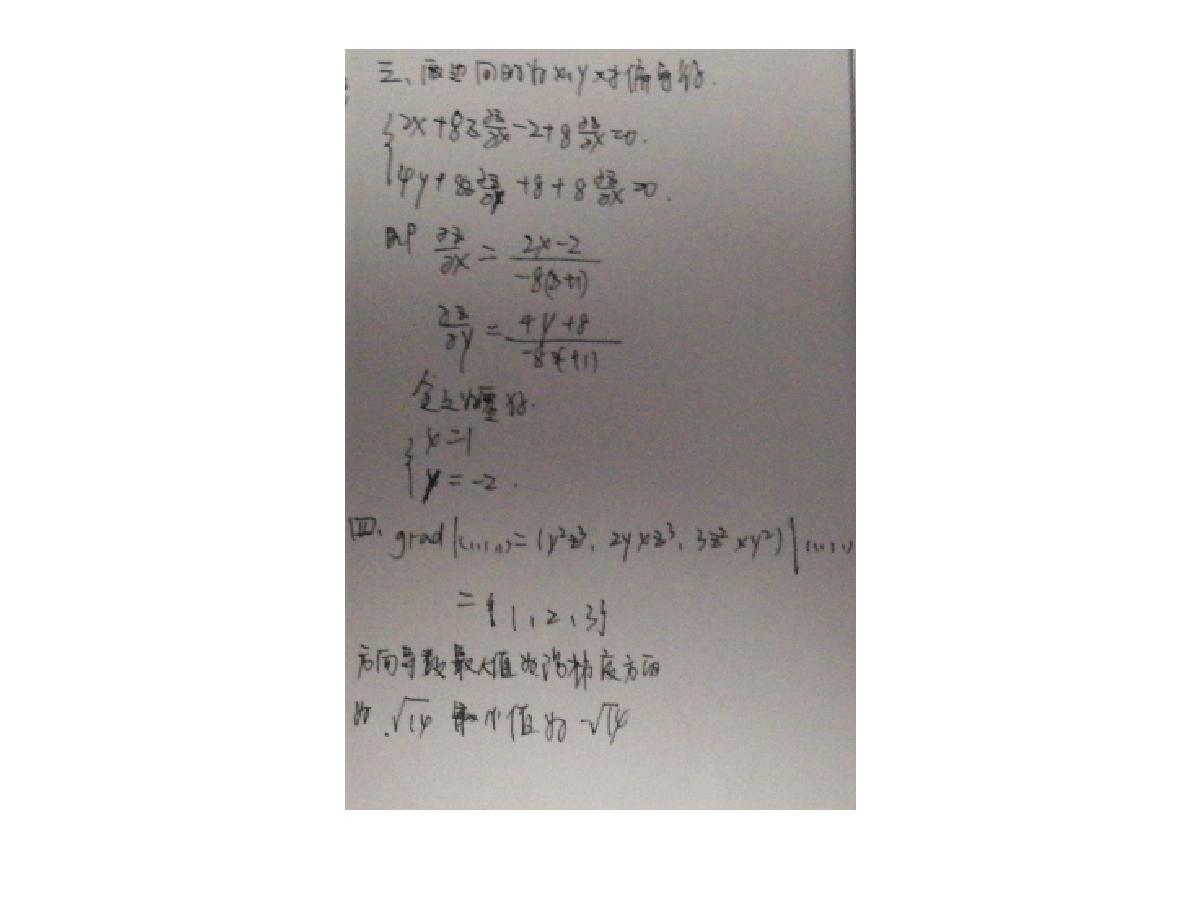 三、两边同时为x,y求偏导得.
2x+8z ∂z/∂x -2+8 ∂z/∂x =0.
4y+8z ∂z/∂y +8+8 ∂z/∂x =0.
即 ∂z/∂x = (2x-2)/(-8(z+1))
∂z/∂y = (4y+8)/(-8z(+1)
x=1
y=-2.
四、grad|(1,1,1)=(y²z³, 2yxz³, 3z²xy²)|(1,1,1)
={1,2,3}
方向导数最大值为沿梯度方向
为√14 最小值为-√14